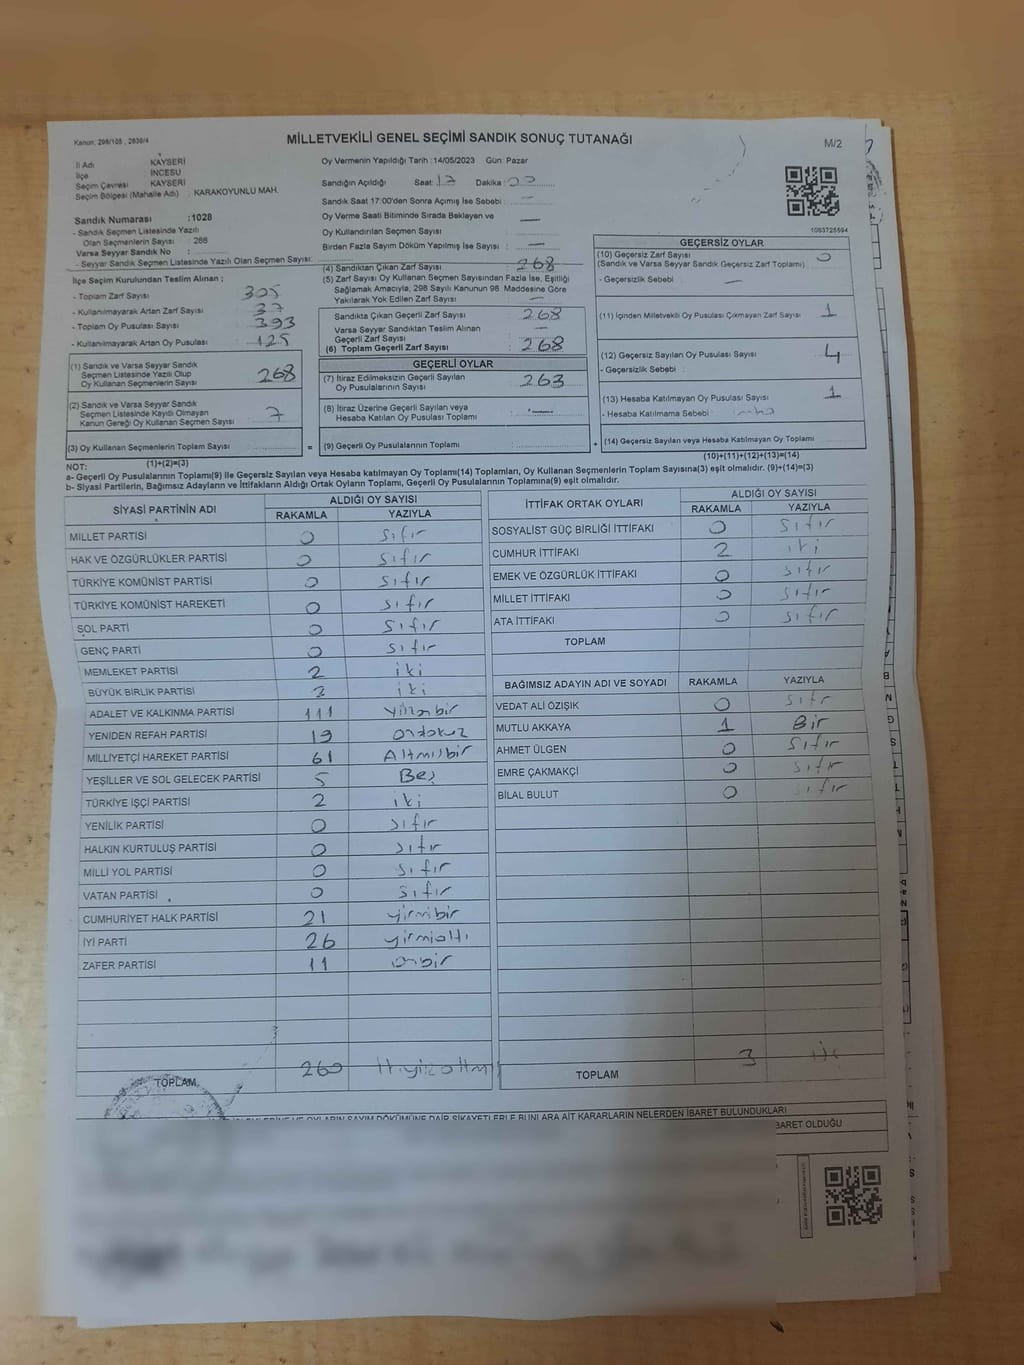 Kanun: 298/105 , 2839/4
MİLLETVEKİLİ GENEL SEÇİMİ SANDIK SONUÇ TUTANAĞI
M/2
İl Adı KAYSERİ
İlçe İNCESU
Seçim Çevresi KAYSERİ
Seçim Bölgesi (Mahalle Adı) : KARAKOYUNLU MAH.
Sandık Numarası :1028
- Sandık Seçmen Listesinde Yazılı
Olan Seçmenlerin Sayısı 288
Varsa Seyyar Sandık No :
- Seyyar Sandık Seçmen Listesinde Yazılı Olan Seçmen Sayısı:
Oy Vermenin Yapıldığı Tarih :14/05/2023 Gün: Pazar
Sandığın Açıldığı Saat: 17 Dakika :
Sandık Saat 17:00'den Sonra Açımış İse Sebebi : —
Oy Verme Saati Bitiminde Sırada Bekleyen ve
Oy Kullandırılan Seçmen Sayısı : —
Birden Fazla Sayım Döküm Yapılmış İse Sayısı : —
1083725594
İlçe Seçim Kurulundan Teslim Alınan ;
- Toplam Zarf Sayısı 305
- Kullanılmayarak Artan Zarf Sayısı 37
- Toplam Oy Pusulası Sayısı 393
- Kullanılmayarak Artan Oy Pusulası 125
(1) Sandık ve Varsa Seyyar Sandık
Seçmen Listesinde Yazılı Olup
Oy Kullanan Seçmenlerin Sayısı 268
(2) Sandık ve Varsa Seyyar Sandık
Seçmen Listesinde Kayıtlı Olmayan
Kanun Gereği Oy Kullanan Seçmen Sayısı 7
(3) Oy Kullanan Seçmenlerin Toplam Sayısı
(1)+(2)=(3)
(4) Sandıktan Çıkan Zarf Sayısı : 268
(5) Zarf Sayısı Oy Kullanan Seçmen Sayısından Fazla İse, Eşitliği
Sağlamak Amacıyla, 298 Sayılı Kanunun 98. Maddesine Göre
Yakılarak Yok Edilen Zarf Sayısı : —
Sandıkta Çıkan Geçerli Zarf Sayısı : 268
Varsa Seyyar Sandıktan Teslim Alınan
Geçerli Zarf Sayısı : —
(6) Toplam Geçerli Zarf Sayısı : 268
GEÇERLİ OYLAR
(7) İtiraz Edilmeksizin Geçerli Sayılan
Oy Pusulalarının Sayısı : 263
(8) İtiraz Üzerine Geçerli Sayılan veya
Hesaba Katılan Oy Pusulası Toplamı :
= (9) Geçerli Oy Pusulalarının Toplamı :
GEÇERSİZ OYLAR
(10) Geçersiz Zarf Sayısı : 0
(Sandık ve Varsa Seyyar Sandık Geçersiz Zarf Toplamı)
- Geçersizlik Sebebi : —
(11) İçinden Milletvekili Oy Pusulası Çıkmayan Zarf Sayısı : 1
(12) Geçersiz Sayılan Oy Pusulası Sayısı : 4
- Geçersizlik Sebebi :
(13) Hesaba Katılmayan Oy Pusulası Sayısı : 1
- Hesaba Katılmama Sebebi :
+ (14) Geçersiz Sayılan veya Hesaba Katılmayan Oy Toplamı
(10)+(11)+(12)+(13)=(14)
NOT:
a- Geçerli Oy Pusulalarının Toplamı(9) ile Geçersiz Sayılan veya Hesaba katılmayan Oy Toplamı(14) Toplamları, Oy Kullanan Seçmenlerin Toplam Sayısına(3) eşit olmalıdır. (9)+(14)=(3)
b- Siyasi Partilerin, Bağımsız Adayların ve İttifakların Aldığı Ortak Oyların Toplamı, Geçerli Oy Pusulalarının Toplamına(9) eşit olmalıdır.
SİYASİ PARTİNİN ADI ALDIĞI OY SAYISI
RAKAMLA YAZIYLA
MİLLET PARTİSİ 0 sıfır
HAK VE ÖZGÜRLÜKLER PARTİSİ 0 sıfır
TÜRKİYE KOMÜNİST PARTİSİ 0 sıfır
TÜRKİYE KOMÜNİST HAREKETİ 0 sıfır
SOL PARTİ 0 sıfır
GENÇ PARTİ 0 sıfır
MEMLEKET PARTİSİ 2 iki
BÜYÜK BİRLİK PARTİSİ 2 iki
ADALET VE KALKINMA PARTİSİ 111
YENİDEN REFAH PARTİSİ 19 ondokuz
MİLLİYETÇİ HAREKET PARTİSİ 61 Altmışbir
YEŞİLLER VE SOL GELECEK PARTİSİ 5 Beş
TÜRKİYE İŞÇİ PARTİSİ 2 iki
YENİLİK PARTİSİ 0 sıfır
HALKIN KURTULUŞ PARTİSİ 0 sıfır
MİLLİ YOL PARTİSİ 0 sıfır
VATAN PARTİSİ 0 sıfır
CUMHURİYET HALK PARTİSİ 21 yirmibir
İYİ PARTİ 26 yirmialtı
ZAFER PARTİSİ 11 onbir
TOPLAM 260
İTTİFAK ORTAK OYLARI ALDIĞI OY SAYISI
RAKAMLA YAZIYLA
SOSYALİST GÜÇ BİRLİĞİ İTTİFAKI 0 sıfır
CUMHUR İTTİFAKI 2 iki
EMEK VE ÖZGÜRLÜK İTTİFAKI 0 sıfır
MİLLET İTTİFAKI 0 sıfır
ATA İTTİFAKI 0 sıfır
TOPLAM
BAĞIMSIZ ADAYIN ADI VE SOYADI RAKAMLA YAZIYLA
VEDAT ALİ ÖZIŞIK 0 sıfır
MUTLU AKKAYA 1 Bir
AHMET ÜLGEN 0 sıfır
EMRE ÇAKMAKÇİ 0 sıfır
BİLAL BULUT 0 sıfır
TOPLAM 3 üç
VE OYLARIN SAYIM DÖKÜMÜNE DAİR ŞİKAYETLERLE BUNLARA AİT KARARLARIN NELERDEN İBARET BULUNDUKLARI
BARET OLDUĞU